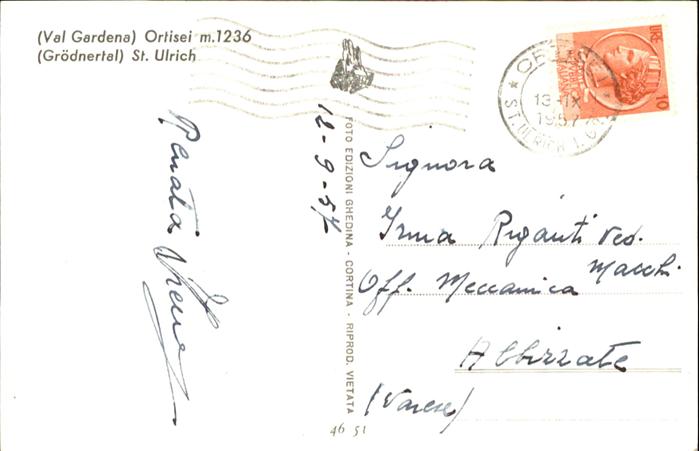 (Val Gardena) Ortisei m.1236
(Grödnertal) St. Ulrich
ORTISEI
13-IX
1957
ST. ULRICH I. GR.
LIRE
10
12-9-57
Renata
Signora
Irma Riganti ved.
Macchi
Off. Meccanica
Albizzate
(Varese)
FOTO EDIZIONI GHEDINA - CORTINA - RIPROD. VIETATA
46 51